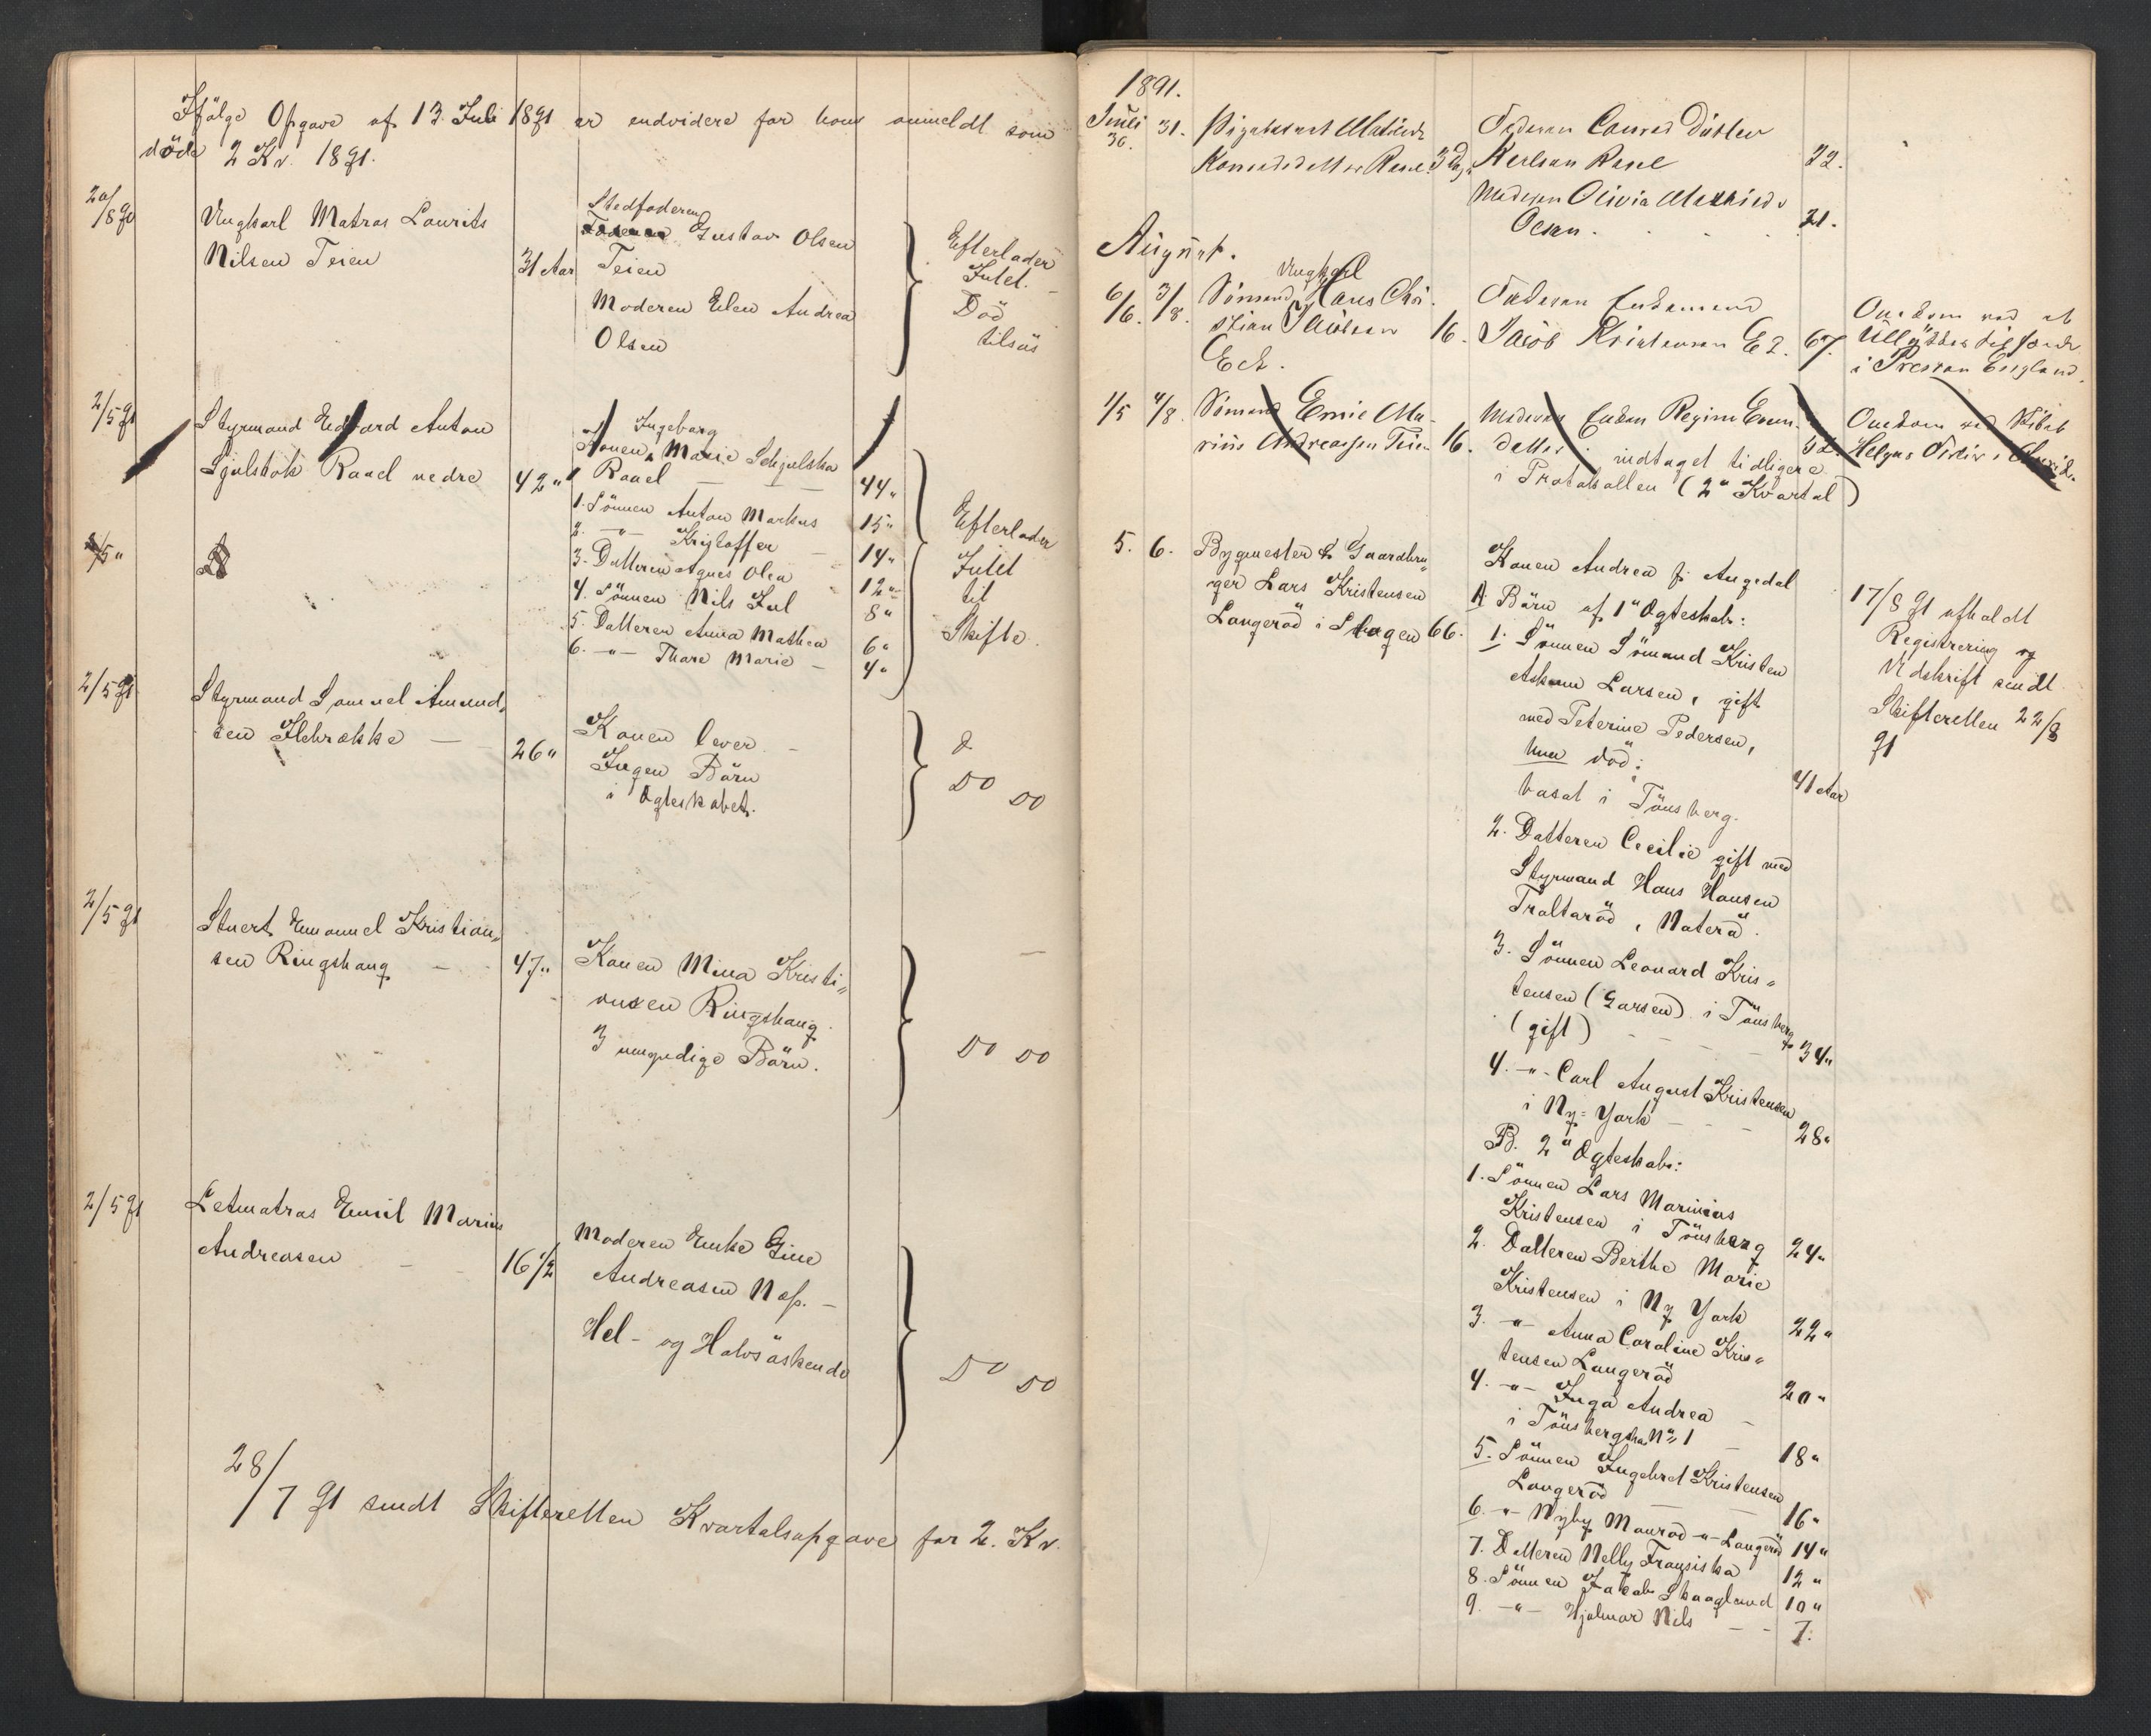 Ifølge Opgave af 13. Juli 1891 er endvidere for hans anmeldt som
døde 2 Kv. 1891.
20/8 90
Ungkarl Matros Laurits
Nilsen Teien
31 Aar
Stedfaderen
Gustav Olsen
Teien
Moderen Elen Andrea
Olsen
Efterlader
Intet.
Død
tilsøs
2/5 91
Styrmand Edvard Anton
Sjulstok Raael nedre
42"
Ingeborg
Konen, Marie Schjulska
Raael
44"
1. Sønnen Anton Markus 15"
2. -"- Kristoffer 14"
3. Datteren Agnes Olea 12"
4. Sønnen Nils Jul 8"
5. Datteren Anna Mathea 6"
6. -"- Thora Marie 4"
Efterlader
Intet
til
Skifte.
2/5 91
Styrmand Samuel Amund,
sen Ilebrekke
26"
Konen lever
Ingen Børn
i Ægteskabet.
Do Do
2/5 91
Stuert Emanuel Kristian,,
sen Ringshaug
47"
Konen Mina Kristi,,
ansen Ringshaug.
3 umyndige Børn.
Do Do
2/5 91
Letmatros Emil Marius
Andreasen
16 1/2
Moderen Enke Gine
Andreasen Næs.
Hel- og Halvsøskende
Do Do
28/7 91 sendt Skifteretten Kvartalsopgave for 2. Kv.
1891.
Juli
30. 31. Pigebarnet Mathilde
Konradsdatter Rael. 3 Dage
Faderen Conrad Ditlev
Karlsen Rael 22.
Moderen Olivia Mathilde
Olsen. 21.
August.
Ungkarl
6/6. 3/8. Sømand Hans Chri-
stian Jacobsen 16.
Eek.
Faderen Enkemand
Jacob Kristensen Ek. 67.
Omkom ved et
Ulykkestilfælde
i Preston England.
1/5 4/8. Sømand Emil Ma-
rius Andreassen Teien 16.
Moderen Enken Regine Evens-
datter. indtaget tidligere
i Protokollen (2" Kvartal)
Omkom ved Skibet
5. 6. Bygmester & Gaardbru,,
ger Lars Kristensen
Langerød i Slagen 66.
Konen Andrea f. Augedal
A. Børn af 1" Ægteskab:
1. Sønnen Sømand Kristen
Larsen, gift
med Peterine Pedersen,
hun død;
bosat i Tønsberg. 41 Aar
2. Datteren Cecilie gift med
Styrmand Hans Hansen
Traltarød, Nøterø.
3. Sønnen Leonard Kris,,
tensen (Larsen) i Tønsberg
(gift) 34"
4. -"- Carl August Kristensen
i Ny-York 28"
B. 2" Ægteskab:
1. Sønnen Lars Marinius
Kristensen i Tønsberg 24"
2. Datteren Berthe Marie
Kristensen i Ny York 22"
3. -"- Anna Caroline Kris,,
tensen Langerød 20"
4. -"- Inga Andrea
i Tønsberg No 1 18"
5. Sønnen Ingebret Kristensen
Langerød 16"
6. -"- Nyby Monrad -"- Langerød 14"
7. Datteren Nelly Fransiska 12"
8. Sønnen Jakob Skaagland 10"
9. -"- Hjalmar Nils 7.
17/8 91 afholdt
Registrering og
Udskrift sendt
Skifteretten 22/8
91